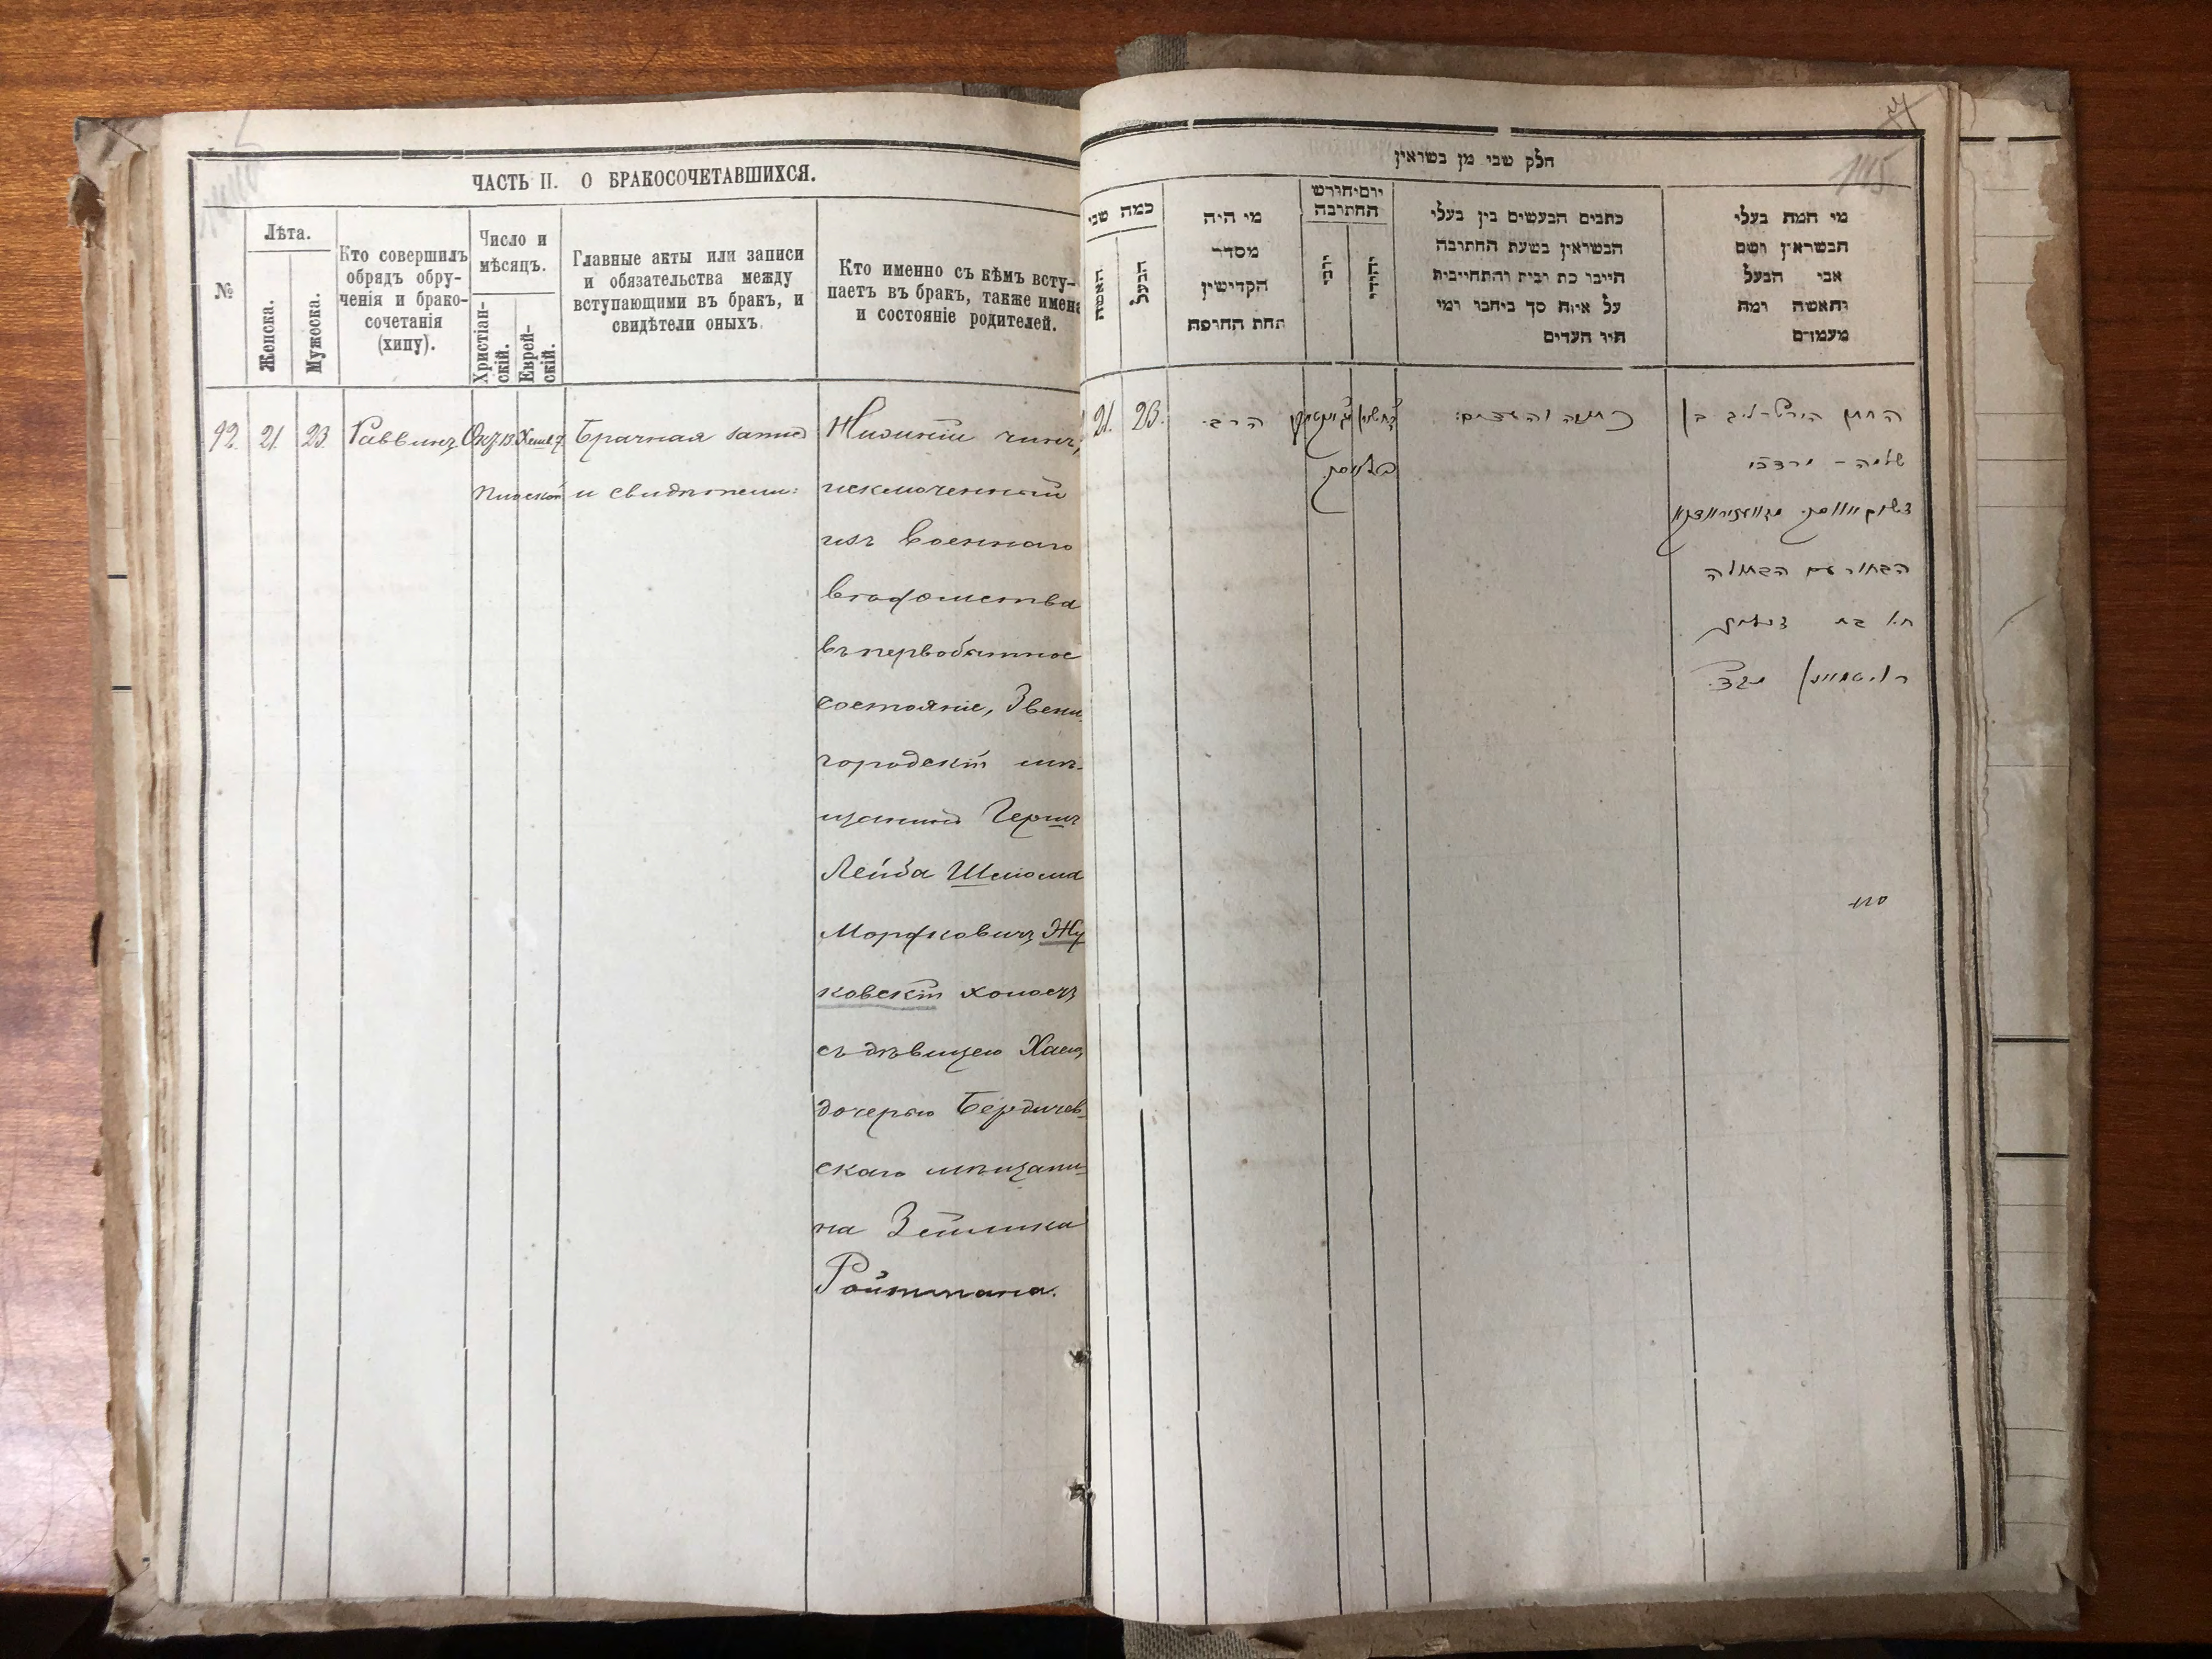 ЧАСТЬ II. О БРАКОСОЧЕТАВШИХСЯ.
№
Лѣта.
Женска.
Мужеска.
Кто совершилъ
обрядъ обру-
ченія и брако-
сочетанія
(хипу).
Число и
мѣсяцъ.
Христіан-
скій.
Еврей-
скій.
Главные акты или записи
и обязательства между
вступающими въ бракъ, и
свидѣтели оныхъ.
Кто именно съ кѣмъ всту-
паетъ въ бракъ, также имена
и состояніе родителей.
92.
21.
23
Раввинъ
Окт 13
Хешв. 7.
Брачная запись
и свидѣтели:
Нижній чинъ,
исключенный
изъ военнаго
вѣдомства
въ первобытное
состояніе, Звени
городскій мѣ-
щанинъ Гершъ
Лейба Шлiома
Мордковичъ Жу
ковскій холостъ
съ дѣвицею Хаею,
дочерью Бердичев-
скаго мѣщани-
на Зейлика
Ройтмана.
חלק שני מן נשואין
כמה שני
האשה
הבעל
מי היה
מסדר
הקדישין
תחת החופה
יום וחודש
החתונה
יהודי
כתבים הנעשים בין בעלי
הנשואין בשעת החתונה
חייבו כת ובית והתחייבות
על איזה סך כיתבו ומי
היו העדים
מי המה בעלי
הנשואין ושם
אבי הבעל
והאשה ומה
מעמדם
21.
23.
הרב.
כתובה והעדים:
החתן הירש-ליב בן
שלמה - מרדכי
הבחור עם הבתולה
חי' בת זעליק
רויטמאן
145